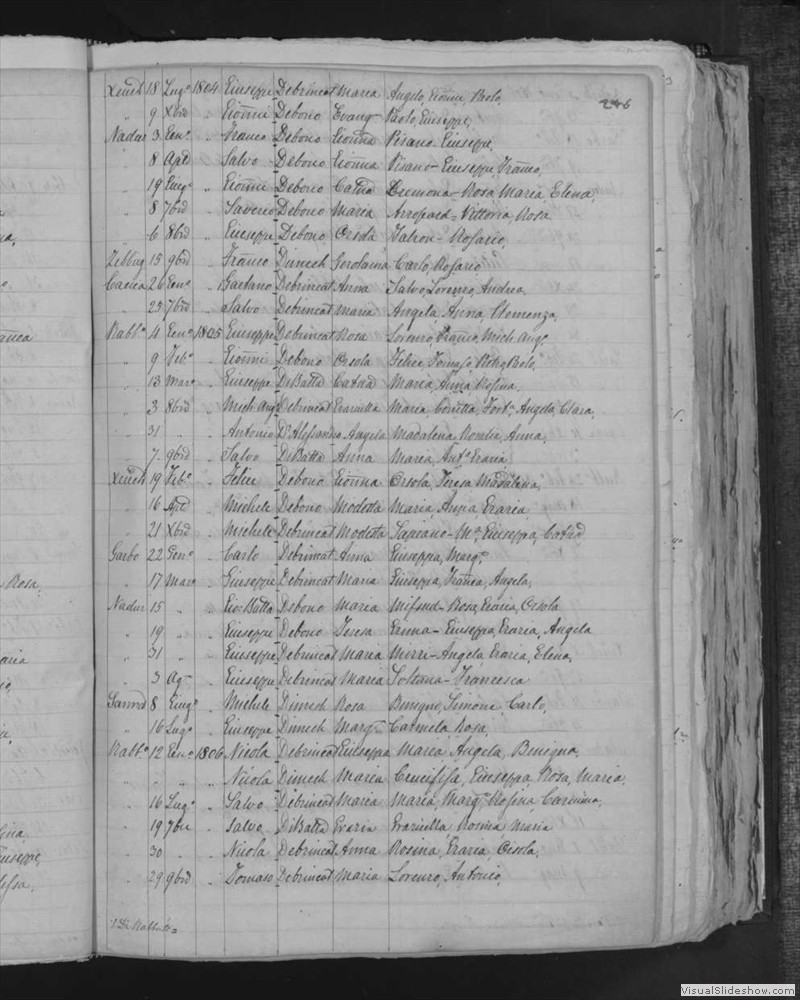 246
18 Lug.o 1804 Giuseppe Debrincat Maria Angelo, Gionni, Paolo,
" 9 Xbr̄e " Gionni Debono Evang- Paolo, Giuseppe,
Nadur 3 Gen.o " Franco Debono Gionna Pisano- Giuseppe,
" 8 Apl̄e " Salvo Debono Gionna Pisano- Giuseppe, Franco,
" 19 Giug.o " Gionni Debono Catna Rosa, Maria, Elena,
" 8 7br̄e " Saverio Debono Maria Vittoria, Rosa
6 8br̄e " Giuseppe Debono Orsola Rosario,
Zebbug 15 9br̄e " Franco Dimech Gerolama Carlo, Rosario
Caccia 26 Gen.o " Gaetano Debrincat Anna Salvo, Lorenzo, Andrea,
" 25 7br̄e " Salvo Debrincat Maria Angela, Anna, Clemenza,
Rabb.o 4 Gen.o 1805 Giuseppe Debrincat Rosa Lorenzo, Franco, Mich. Ang.o
" 9 Feb.o " Gionni Debono Orsola Felice, Tomaso, Pietro, Paolo,
" 13 Marzo " Giuseppe DiBatta Catna Maria, Anna, Rosina,
" 3 8br̄e " Mich. Ang.o Debrincat Graziulla Maria, Fort.a, Angela, Clara,
" 31 " " Antonio D'Alessandro Angela Madalena, Anna,
" 7 9br̄e " Salvo DiBatta Anna Maria, Ant.a Grazia,
19 Feb.o " Felice Debono Gionna Orsola, Teresa, Madalena,
" 16 Apl̄e " Michele Debono Modesta Maria, Anna, Grazia
" 21 Xbr̄e " Michele Debrincat Modesta Sapiano- M.a Giuseppa, Catna
Garbo 22 Gen.o " Carlo Debrincat Anna Giuseppa, Marg.a
" 17 Marzo " Giuseppe Debrincat Maria Giuseppa, Franca, Angela,
Nadur 15 " " Gio: Batta Debono Maria Mifsud- Rosa, Grazia, Orsola
" 19 " " Giuseppe Debono Teresa Giuseppa, Grazia, Angela
" 31 " " Giuseppe Debrincat Maria Angela, Grazia, Elena,
" 3 Ag- " Giuseppe Debrincat Maria Soltana- Francesca
Sannat 8 Giug.o " Michele Dimech Rosa Benigno, Simone, Carlo,
" 16 Lug.o " Giuseppe Dimech Marg- Carmela, Rosa,
Rabb.o 12 Gen.o 1806 Nicola Debrincat Giuseppa Maria, Angela, Benigna,
" " " " Nicola Dimech Maria Crucifissa, Giuseppa, Rosa, Maria,
" 16 Lug.o " Salvo Debrincat Maria Maria, Marg.a Rosina, Carmina,
" 19 7bre " Salvo DiBatta Grazia Graziulla, Rosina, Maria
" 30 " " Nicola Debrincat Anna Rosina, Grazia, Orsola,
" 29 9br̄e " Tomaso Debrincat Maria Lorenzo, Antonio,
VisualSlideshow.com